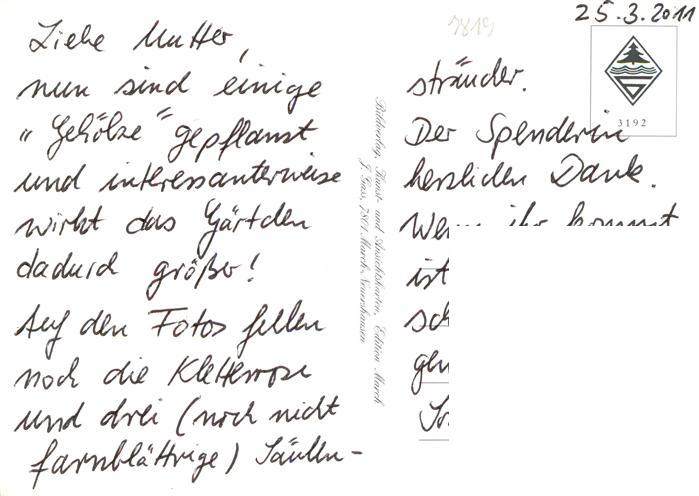 Liebe Mutter,
nun sind einige
„Gehölze“ gepflanzt
und interessanterweise
wirkt das Gärtchen
dadurch größer!
Auf den Fotos fehlen
noch die Kletterrose
und drei (noch nicht
farnblättrige) Säulen-
7819
25.3.2011
3192
sträucher.
Der Spenderin
herzlichen Dank.
Wenn ihr kommt
ist
Bildverlag, Kunst- und Ansichtskarten, Edition March